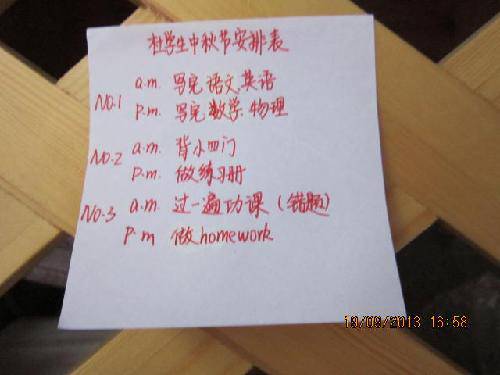 杜学生中秋节安排表
NO.1 a.m. 写完语文,英语
p.m. 写完数学.物理
NO.2 a.m. 背小四门
p.m. 做练习册
NO.3 a.m. 过一遍功课(错题)
p.m 做homework
19/09/2013 16:58